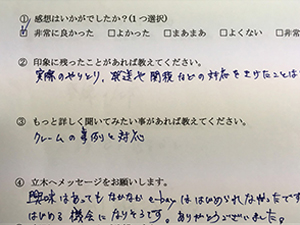 ① 感想はいかがでしたか?(1つ選択)
☑非常に良かった □よかった □まあまあ □よくない □非常
② 印象に残ったことがあれば教えてください。
実際のやりとり、発送や関税などの対応をまけたことは
③ もっと詳しく聞いてみたい事があれば教えてください。
クレームの事例と対応
④ 立木へメッセージをお願いします。
興味はあってもなかなかe-bayははじめられなかったです
はじめる機会になりそうです。ありがとうございました。